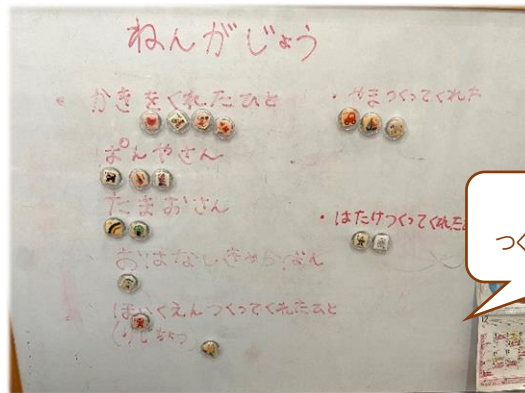 ねんがじょう
・かきをくれたひと
ぱんやさん
たまおさん
ほいくえんつくってくれたひと
・やまつくってくれた
・はたけつくってくれた
つく
12